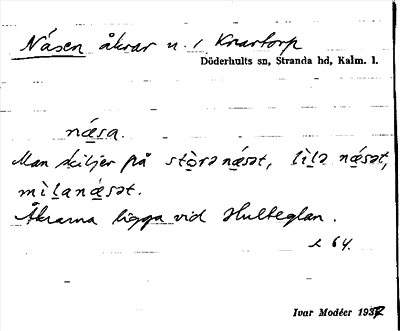 Näsen åkrar n. 1 Knartorp
Döderhults sn, Stranda hd, Kalm. l.
næ̀sa.
Man skiljer på stòrə næ̀sət, lìlə næ̀sət,
mìlanæ̀sət.
Åkrarna ligga vid Hulteglan.
s 64.
Ivar Modéer 1937